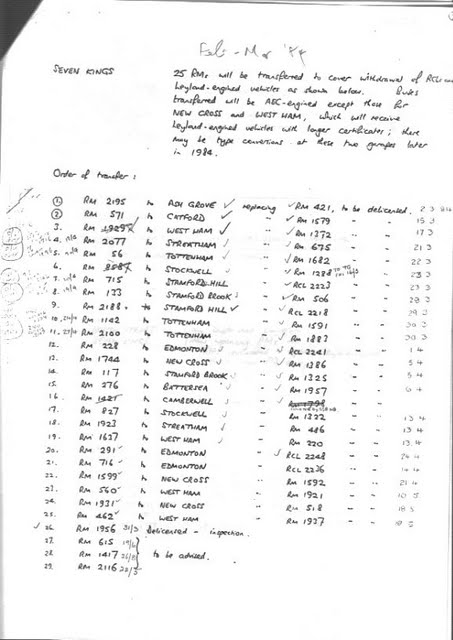 Feb - Mar '84
SEVEN KINGS 25 RMs will be transferred to cover withdrawal of RCLs and
Leyland-engined vehicles as shown below. Buses
transferred will be AEC-engined except those for
NEW CROSS and WEST HAM, which will receive
Leyland-engined vehicles with longer certificates; there
may be type conversions at these two garages later
in 1984.
Order of transfer:
① RM 2195 to ASH GROVE ✓ replacing ✓ RM 421, to be delicensed. 2 3
② RM 571 to CATFORD ✓ " ✓ RM 1579 " " 15 3
3. RM to WEST HAM ✓ " ✓ RM 1372 " " 17 3
4. n/a RM 2077 to STREATHAM ✓ " ✓ RM 675 " " 21 3
5. n/a RM 56 to TOTTENHAM ✓ " ✓ RM 1682 " " 22 3
6. RM to STOCKWELL ✓ " ✓ RM 1288 " " 23 3
7. n/a RM 715 to STAMFORD HILL ✓ " ✓ RCL 2223 " " 23 3
8. n/a RM 133 to STAMFORD BROOK ✓ " ✓ RM 506 " " 28 3
9. RM 2188 to STAMFORD HILL ✓ " RCL 2218 " " 29 3
10. RM 1142 to TOTTENHAM " ✓ RM 1591 " " 30 3
11. RM 2100 to TOTTENHAM " ✓ RM 1883 " " 30 3
12. RM 228 to EDMONTON ✓ " ✓ RCL 2241 " " 1 4
13. RM 1744 to NEW CROSS ✓ " ✓ RM 1386 " " 5 4
14. RM 117 to STAMFORD BROOK ✓ " ✓ RM 1325 " " 5 4
15. RM 276 to BATTERSEA ✓ " ✓ RM 1957 " " 6 4
16. RM to CAMBERWELL ✓ "
17. RM 827 to STOCKWELL ✓ " RM 1322 " " 13 4
18. RM 1923 to STREATHAM ✓ " RM 486 " " 13 4
19. RM 1637 to WEST HAM ✓ " RM 220 " " 13 4
20. RM 291 to EDMONTON " ✓ RCL 2248 " " 14 4
21. RM 716 to EDMONTON " RCL 2236 " " 14 4
22. RM 1599 to NEW CROSS " RM 1592 " " 21 4
23. RM 560 to WEST HAM " RM 1921 " " 10 5
24. RM 1931 to NEW CROSS " RM 518 " " 18 5
25. RM 462 to WEST HAM " RM 1937 " "
✓ 26. RM 1956 31/3 Delicensed - inspection.
27. RM 615
28. RM 1417 } to be advised.
29. RM 2116